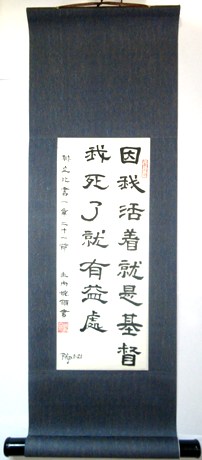 因我活着就是基督
我死了就有益處
腓立比書一章二十一節
Php1:21